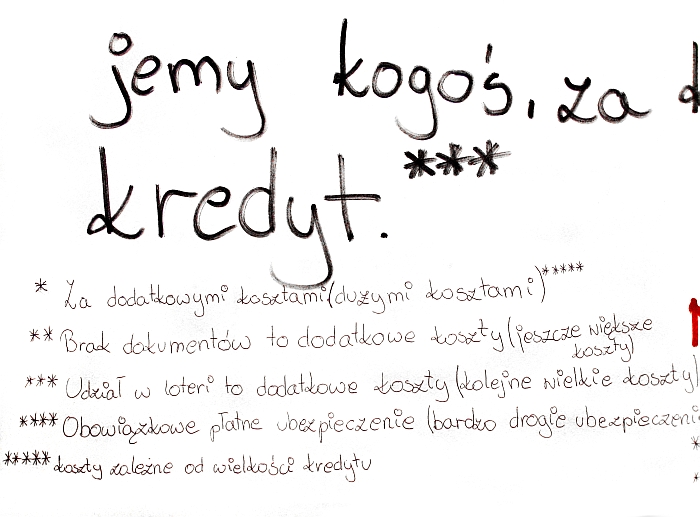 jemy kogoś, za
kredyt.***
* Za dodatkowymi kosztami (dużymi kosztami)*****
** Brak dokumentów to dodatkowe koszty (jeszcze większe
koszty)
*** Udział w loteri to dodatkowe koszty (kolejne wielkie koszty)
**** Obowiązkowe płatne ubezpieczenie (bardzo drogie ubezpieczeni
***** koszty zależne od wielkości kredytu